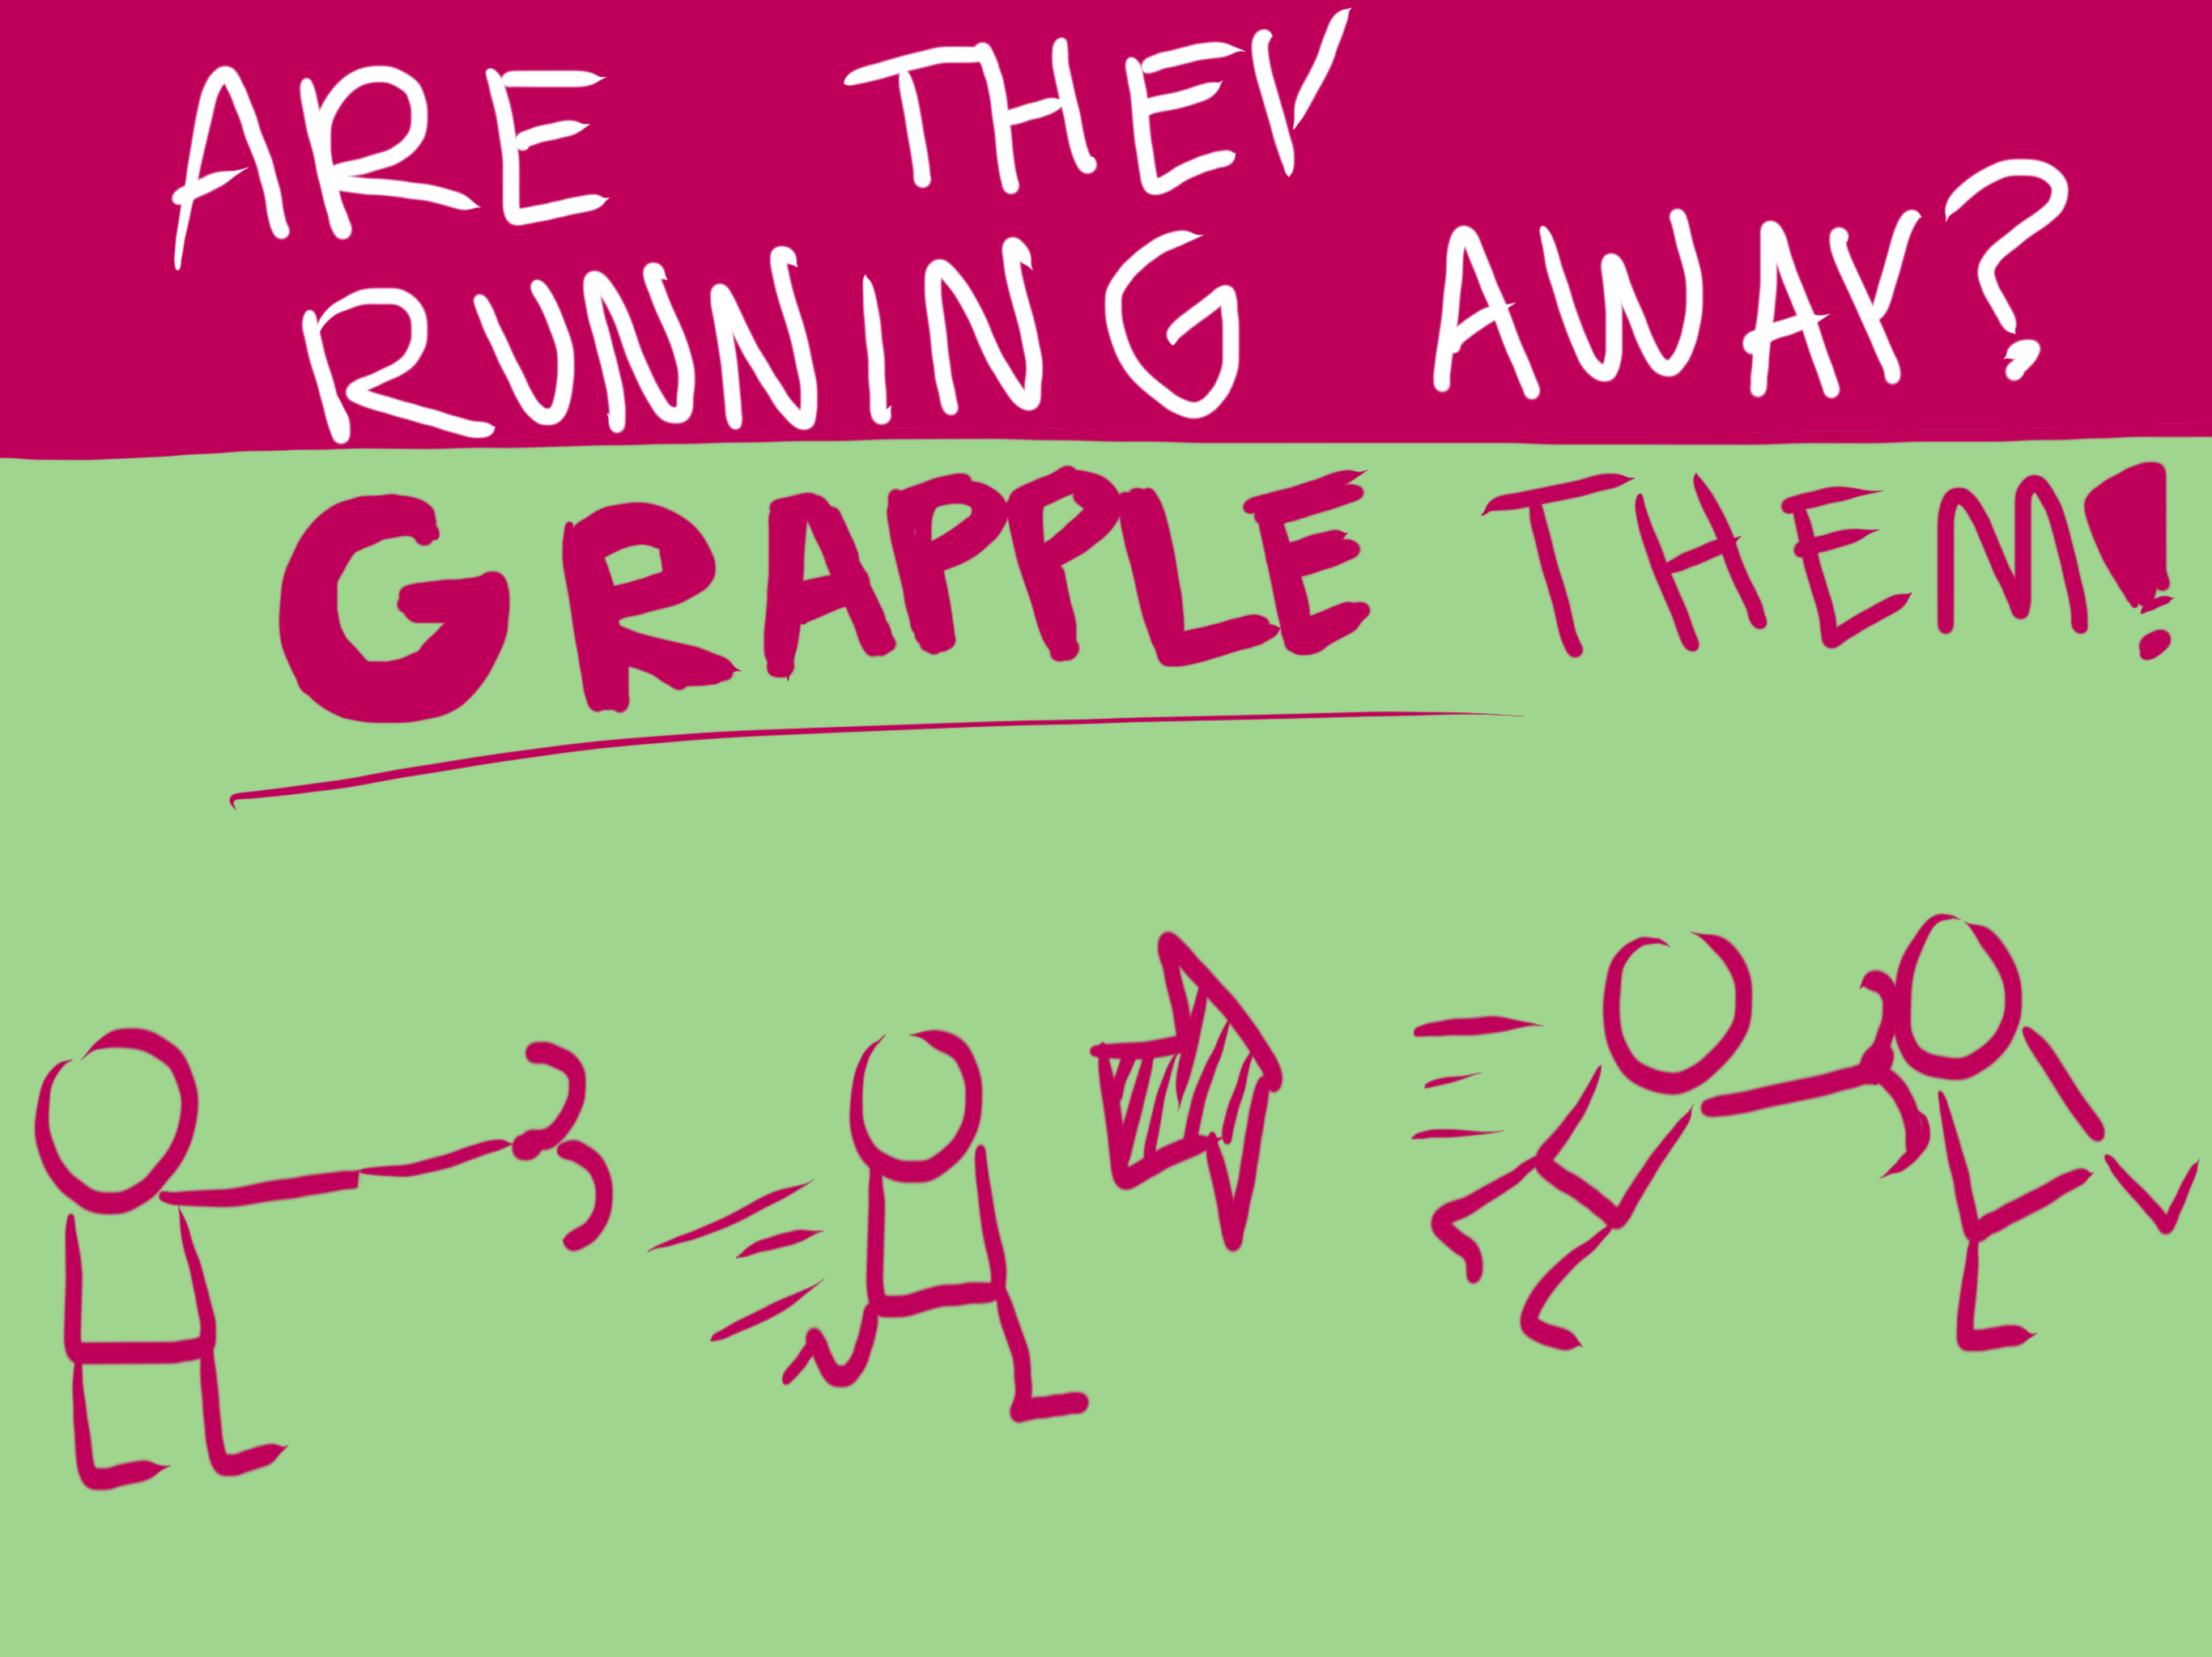 ARE THEY
RUNNING AWAY?
GRAPPLE THEM!